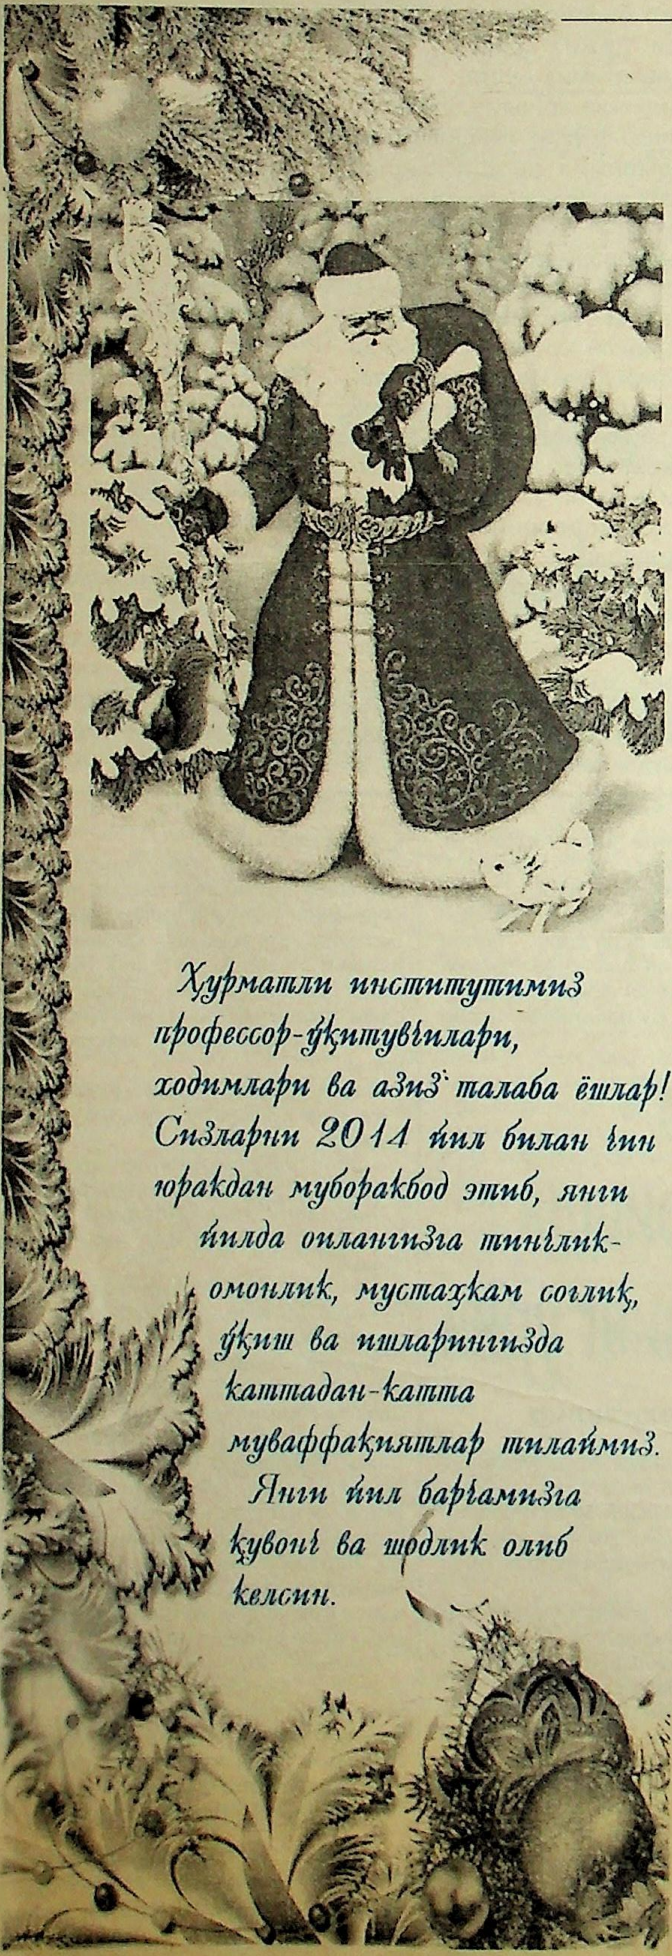 Ҳурматли институтимиз
профессор-ўқитувчилари,
ходимлари ва азиз талаба ёшлар!
Сизларни 2014 йил билан чин
юракдан муборакбод этиб, янги
йилда оилангизга тинчлик-
омонлик, мустаҳкам соғлиқ,
ўқиш ва ишларингизда
каттадан-катта
муваффақиятлар тилаймиз.
Янги йил барчамизга
қувонч ва шодлик олиб
келсин.